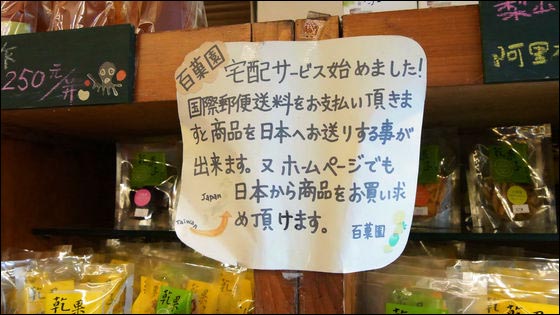 百菓園 宅配サービス始めました!
国際郵便送料をお支払い頂きま
すと商品を日本へお送りする事が
出来ます。又ホームページでも
日本から商品をお買い求
め頂けます。
Japan
Taiwan
百菓園
250元/斤
阿里
乾果